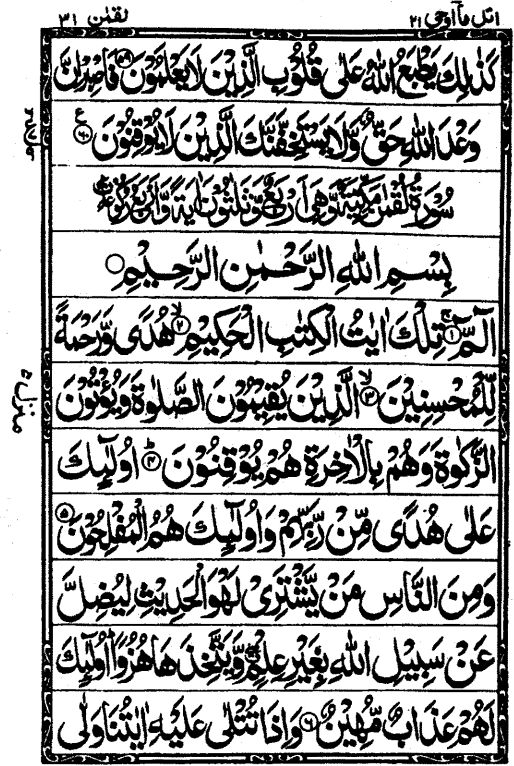 اتل مآ اوحی ۲۱
لقمٰن ۳۱
كَذٰلِكَ يَطْبَعُ اللّٰهُ عَلٰى قُلُوْبِ الَّذِيْنَ لَا يَعْلَمُوْنَ ۵۹ فَاصْبِرْ اِنَّ
وَعْدَ اللّٰهِ حَقٌّ وَّلَا يَسْتَخِفَّنَّكَ الَّذِيْنَ لَا يُوْقِنُوْنَ ۶۰ ع
سُوْرَةُ لُقْمٰنَ مَكِّيَّةٌ وَّهِىَ اَرْبَعٌ وَّثَلٰثُوْنَ اٰيَةً وَّاَرْبَعُ رُكُوْعَاتٍ
بِسْمِ اللّٰهِ الرَّحْمٰنِ الرَّحِيْمِ ○
الٓمّٓ ۱ۚ تِلْكَ اٰيٰتُ الْكِتٰبِ الْحَكِيْمِ ۲ۙ هُدًى وَّرَحْمَةً
لِّلْمُحْسِنِيْنَ ۳ۙ الَّذِيْنَ يُقِيْمُوْنَ الصَّلٰوةَ وَيُؤْتُوْنَ
الزَّكٰوةَ وَهُمْ بِالْاٰخِرَةِ هُمْ يُوْقِنُوْنَ ۴ؕ اُولٰٓئِكَ
عَلٰى هُدًى مِّنْ رَّبِّهِمْ وَاُولٰٓئِكَ هُمُ الْمُفْلِحُوْنَ ۵
وَمِنَ النَّاسِ مَنْ يَّشْتَرِىْ لَهْوَ الْحَدِيْثِ لِيُضِلَّ
عَنْ سَبِيْلِ اللّٰهِ بِغَيْرِ عِلْمٍ ۖ وَّيَتَّخِذَهَا هُزُوًا ؕ اُولٰٓئِكَ
لَهُمْ عَذَابٌ مُّهِيْنٌ ۶ وَاِذَا تُتْلٰى عَلَيْهِ اٰيٰتُنَا وَلّٰى
منزل ۵